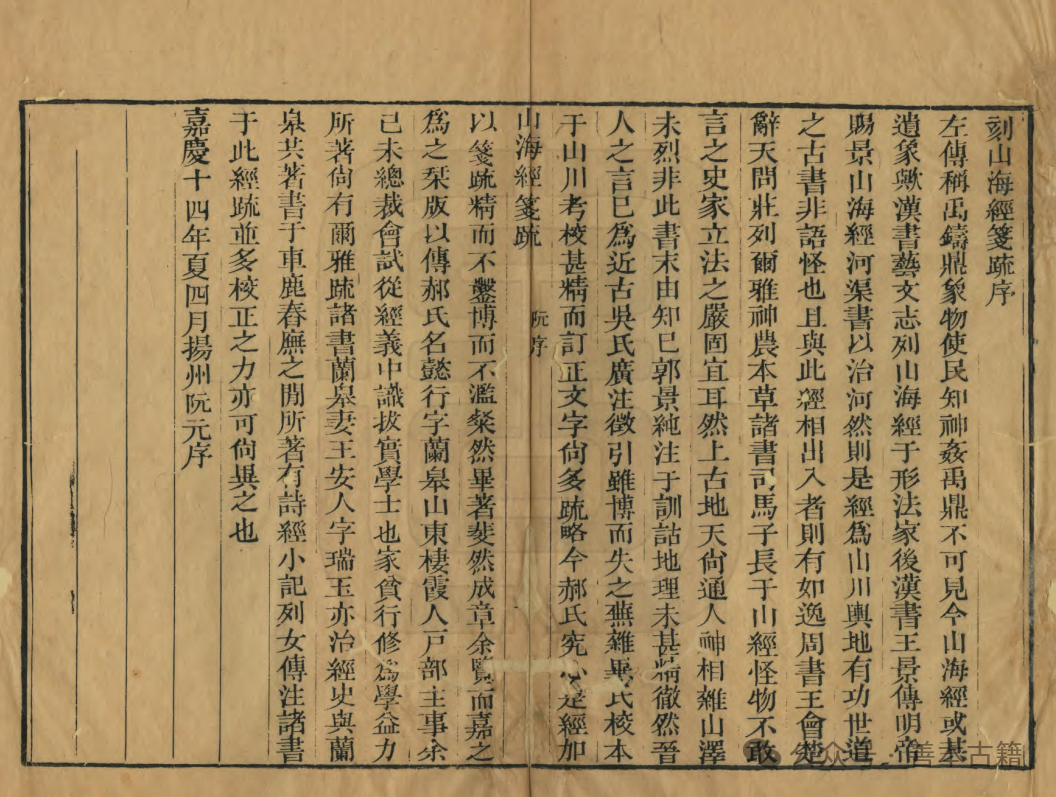 刻山海經箋疏序
左傳稱禹鑄鼎象物使民知神姦禹鼎不可見今山海經或其
遺象歟漢書藝文志列山海經于形法家後漢書王景傳明帝
賜景山海經河渠書以治河然則是經爲山川輿地有功世道
之古書非語怪也且與此經相出入者則有如逸周書王會楚
辭天問莊列爾雅神農本草諸書司馬子長于山經怪物不敢
言之史家立法之嚴固宜耳然上古地天尚通人神相雜山澤
未烈非此書末由知巳郭景純注于訓詁地理未甚精徹然晉
人之言巳爲近古吳氏廣注徵引雖博而失之蕪雜畢氏校本
于山川考校甚精而訂正文字尚多疏略今郝氏究心是經加
山海經箋疏 阮序
以箋疏精而不鑿博而不濫粲然畢著斐然成章余覽而嘉之
爲之栞版以傳郝氏名懿行字蘭皋山東棲霞人戸部主事余
己未總裁會試從經義中識拔實學士也家貧行修爲學益力
所著尚有爾雅疏諸書蘭皋妻王安人字瑞玉亦治經史與蘭
皋共著書于車鹿春廡之閒所著有詩經小記列女傳注諸書
于此經疏並多校正之力亦可尚異之也
嘉慶十四年夏四月揚州阮元序
公众号·善本古籍